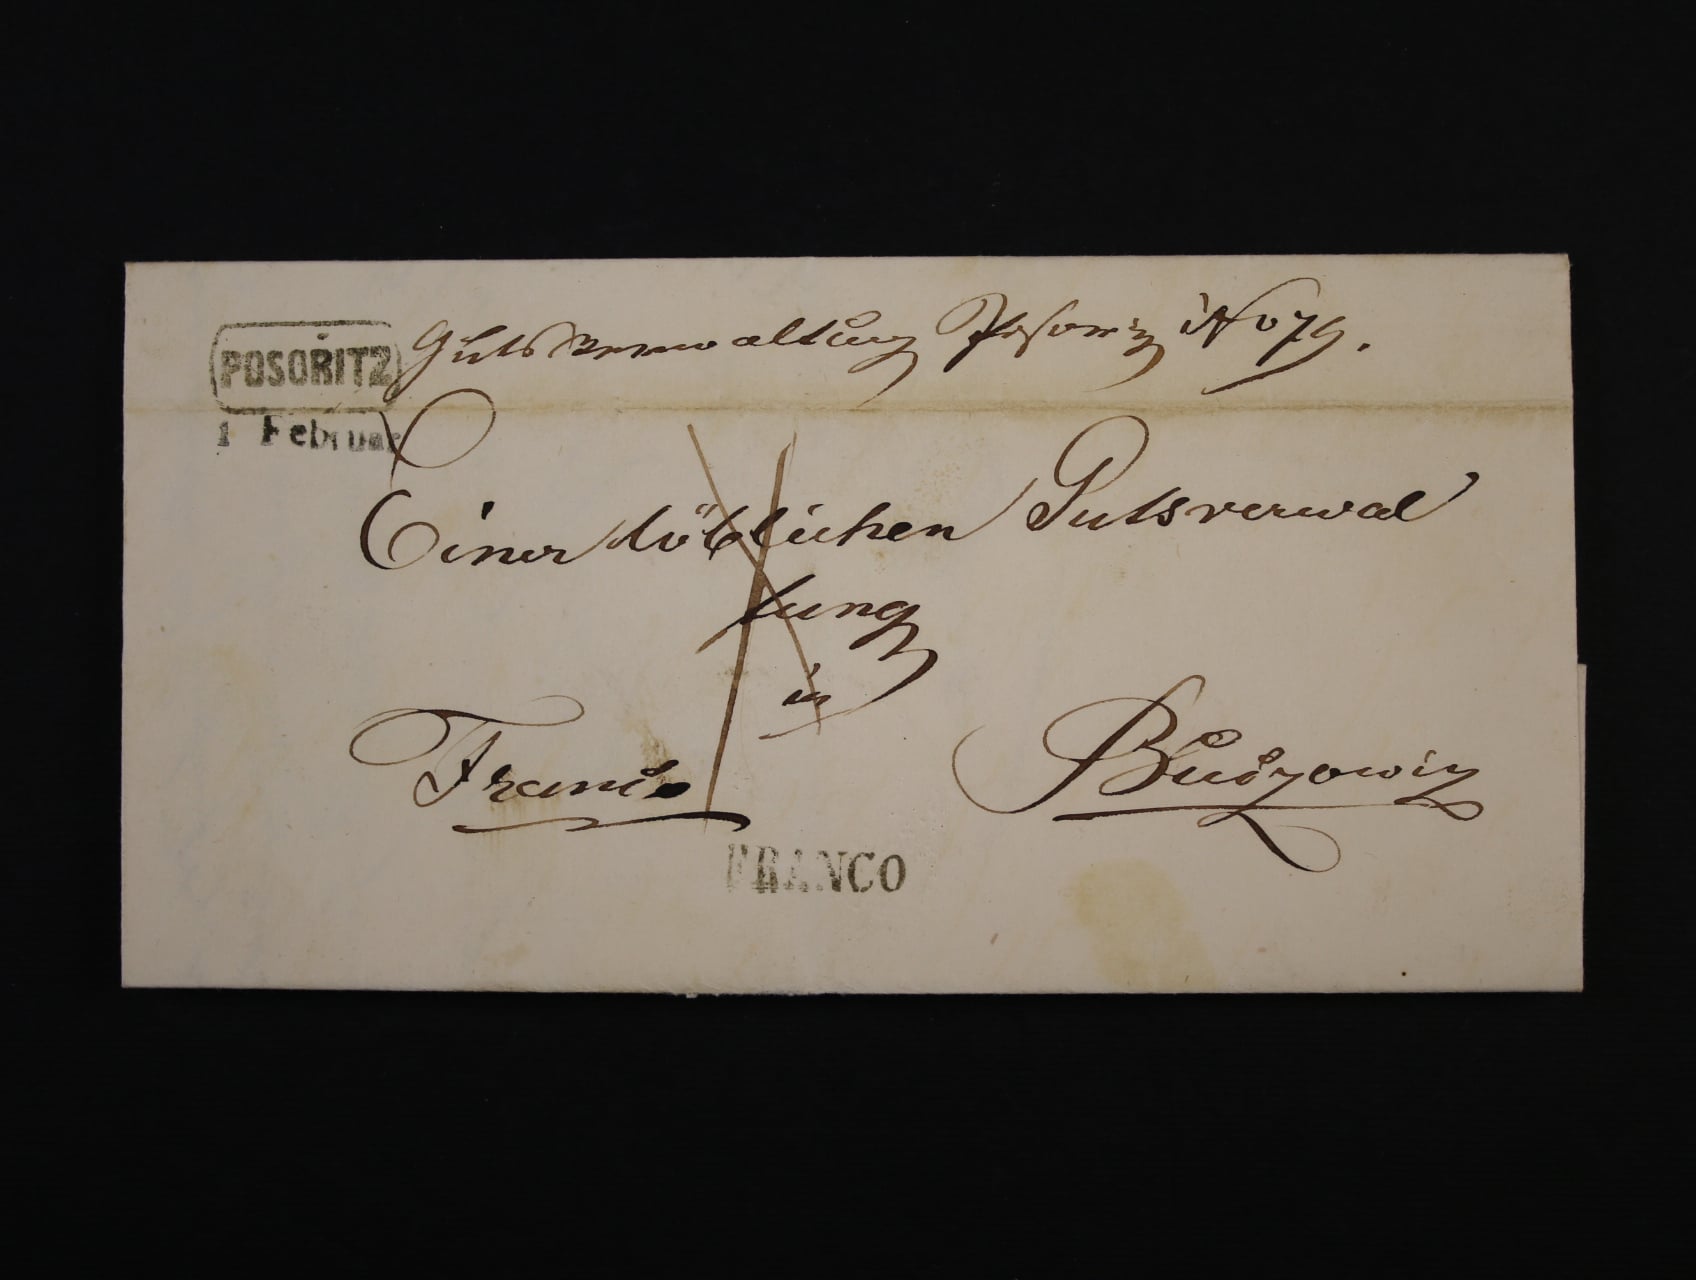 POSOŘITZ
1 Februar
Gutsverwaltung Posorz No 79.
Einer löblichen Gutsverwal
tung
in
Franco
Butschowiz
FRANCO